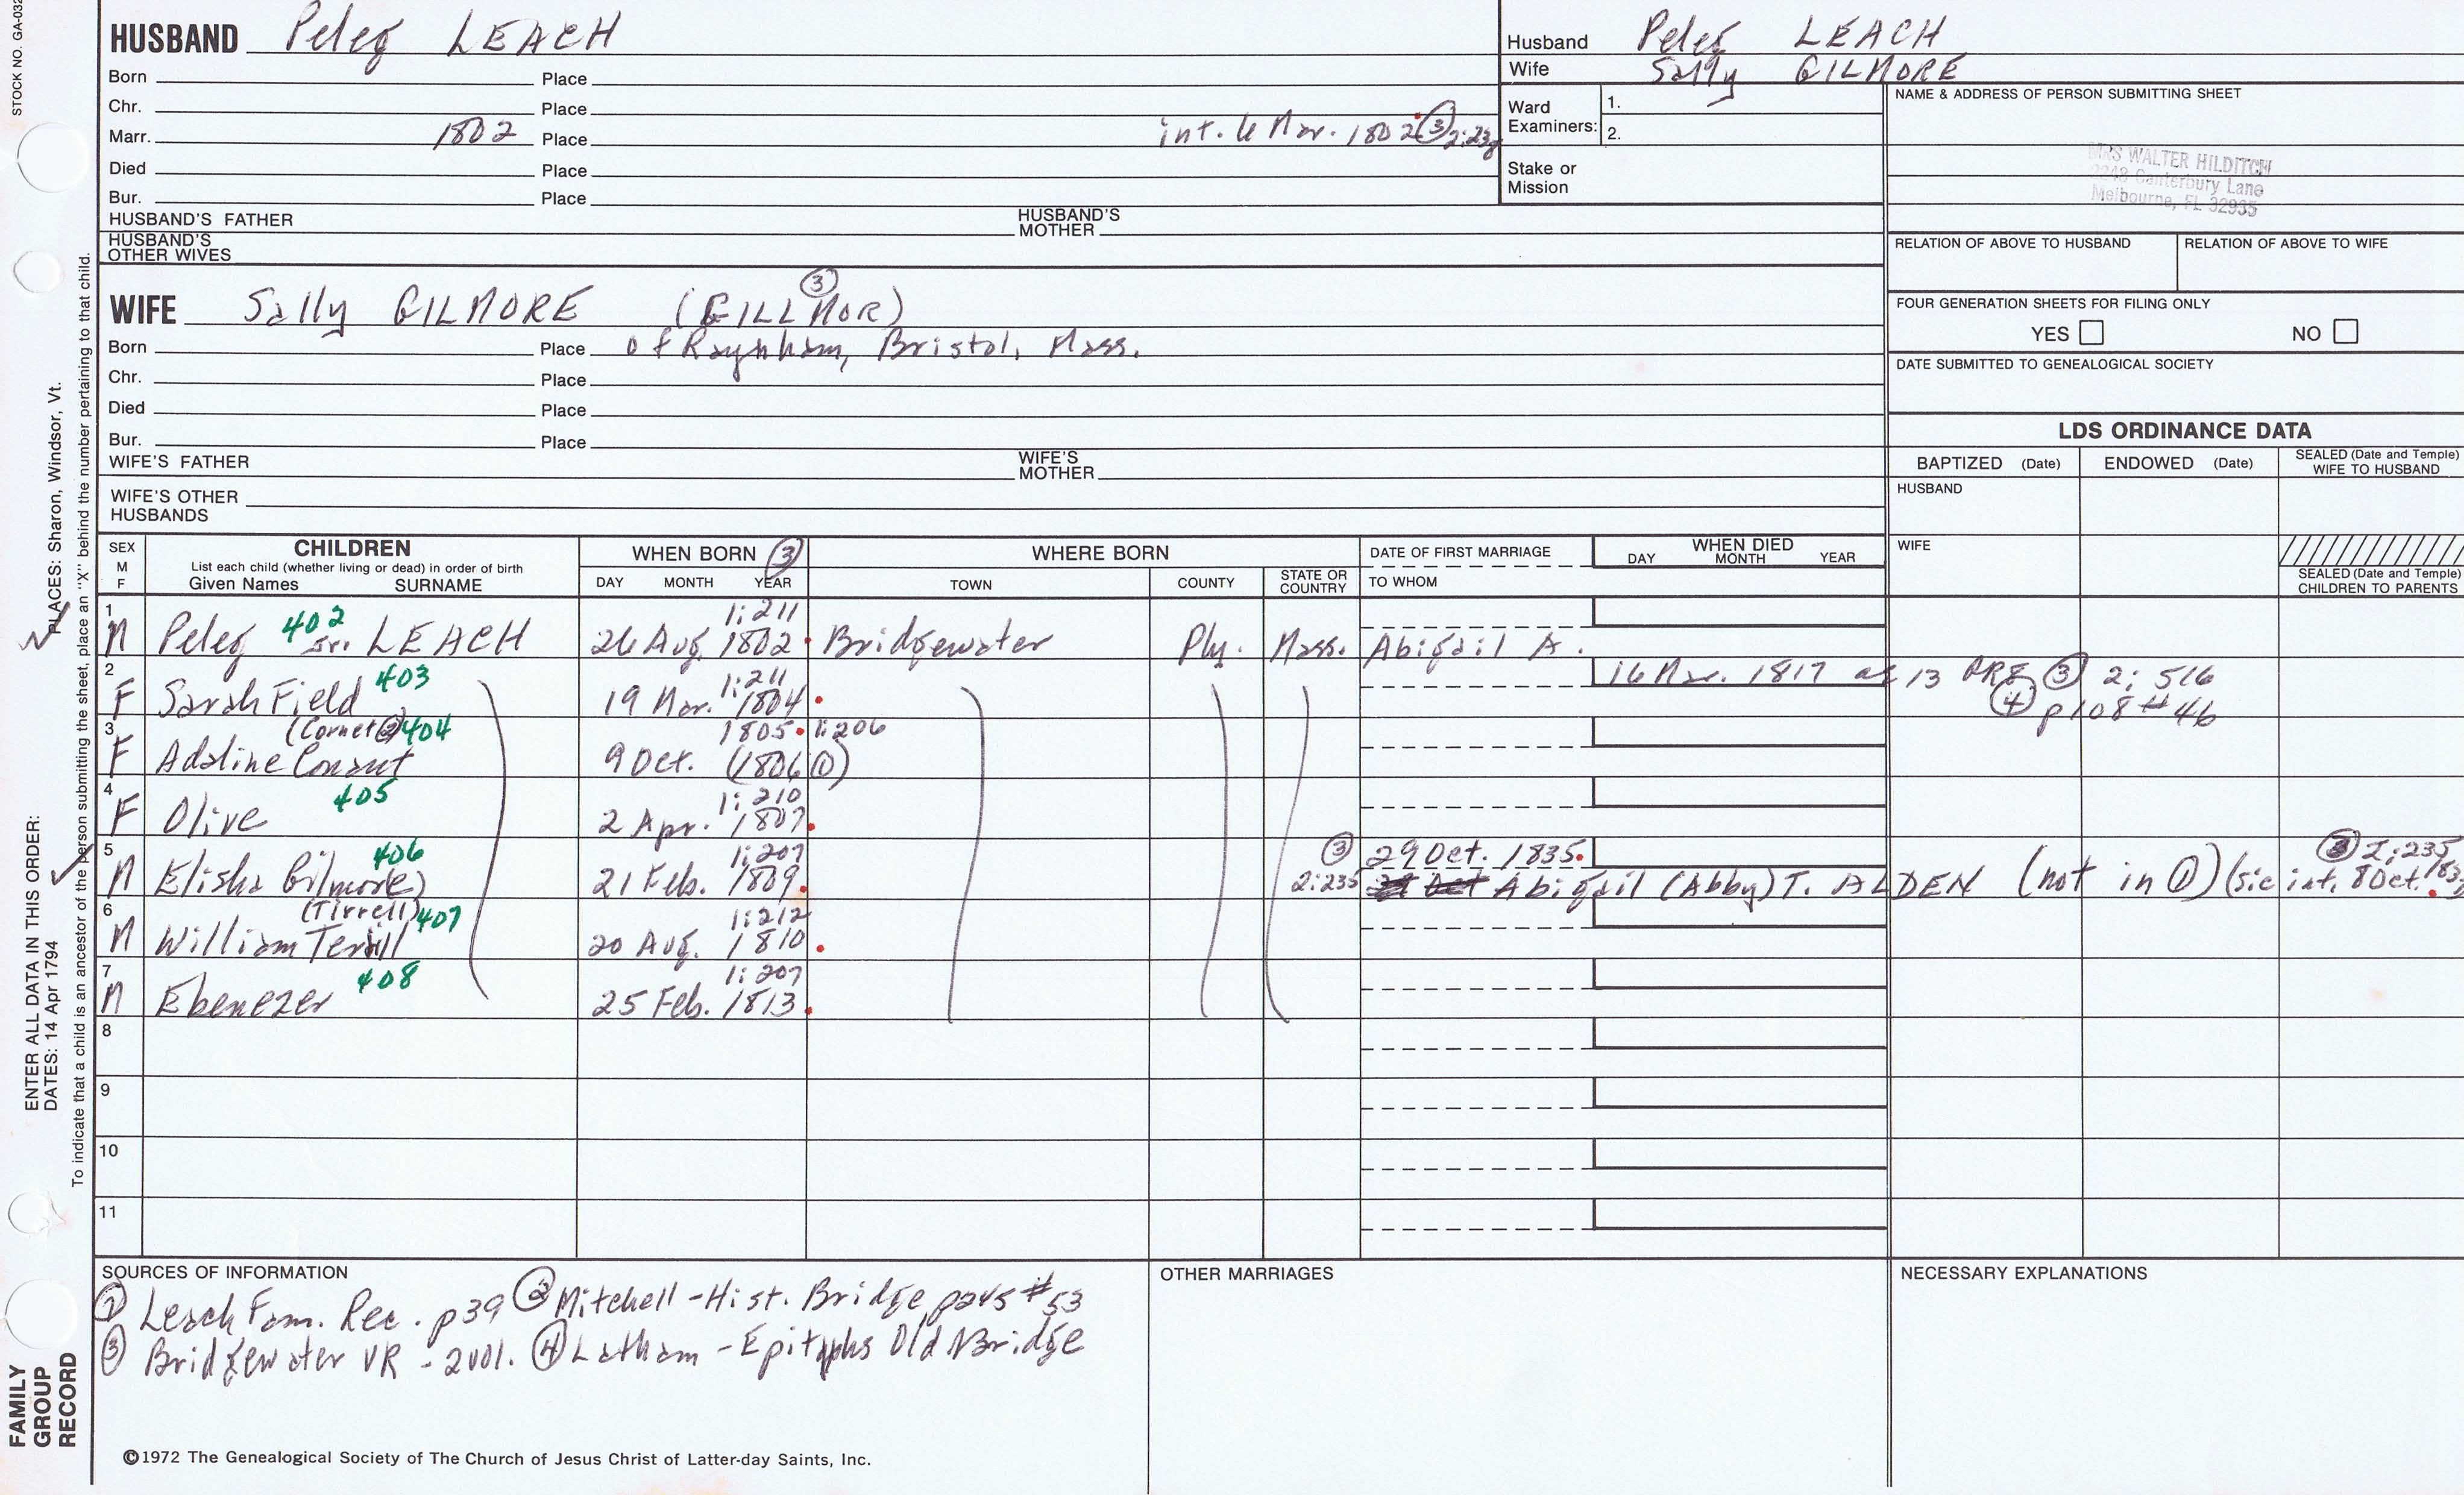 STOCK NO. GA-032
HUSBAND Peleg LEACH
Born Place
Chr. Place
Marr. 1802 Place int. 6 Mar. 1802 ③ 2:238
Died Place
Bur. Place
HUSBAND'S FATHER HUSBAND'S MOTHER
HUSBAND'S OTHER WIVES
Husband Peleg LEACH
Wife Sally GILMORE
Ward Examiners: 1.
2.
Stake or Mission
NAME & ADDRESS OF PERSON SUBMITTING SHEET
MRS WALTER HILDITCH
2248 Canterbury Lane
Melbourne, FL 32935
RELATION OF ABOVE TO HUSBAND RELATION OF ABOVE TO WIFE
FOUR GENERATION SHEETS FOR FILING ONLY
YES NO
DATE SUBMITTED TO GENEALOGICAL SOCIETY
③
WIFE Sally GILMORE (GILLMOR)
Born Place of Raynham, Bristol, Mass.
Chr. Place
Died Place
Bur. Place
WIFE'S FATHER WIFE'S MOTHER
WIFE'S OTHER HUSBANDS
LDS ORDINANCE DATA
BAPTIZED (Date) ENDOWED (Date) SEALED (Date and Temple) WIFE TO HUSBAND
HUSBAND
WIFE
SEALED (Date and Temple) CHILDREN TO PARENTS
SEX M F
CHILDREN
List each child (whether living or dead) in order of birth
Given Names SURNAME
WHEN BORN ③
DAY MONTH YEAR
WHERE BORN
TOWN COUNTY STATE OR COUNTRY
DATE OF FIRST MARRIAGE
TO WHOM
WHEN DIED
DAY MONTH YEAR
1 402 1:211
M Peleg Jr. LEACH 26 Aug. 1802 Bridgewater Ply. Mass. Abigail A.
2 403 1:211 16 Mar. 1817 ae 13 PR8 ③ 2:516
F Sarah Field 19 Mar. 1804 ④ p108 #46
3 (Cornet ②) 404 1805 1:206
F Adaline Conant 9 Oct. (1806 ①)
4 405 1:210
F Olive 2 Apr. 1807
5 406 1:207 ③ 29 Oct. 1835 ③ 2:235
M Elisha Gilmore 21 Feb. 1809 2:235 Abigail (Abby) T. ALDEN (not in ①) (sic int. 8 Oct.
6 (Tirrell) 407 1:212
M William Terrill 20 Aug. 1810
7 408 1:207
M Ebenezer 25 Feb. 1813
8
9
10
11
SOURCES OF INFORMATION
① Leach Fam. Rec. p39 ② Mitchell - Hist. Bridge p245 #53
③ Bridgewater VR - 2vol. ④ Latham - Epitaphs Old Bridge
OTHER MARRIAGES
NECESSARY EXPLANATIONS
©1972 The Genealogical Society of The Church of Jesus Christ of Latter-day Saints, Inc.
ENTER ALL DATA IN THIS ORDER:
DATES: 14 Apr 1794
PLACES: Sharon, Windsor, Vt.
To indicate that a child is an ancestor of the person submitting the sheet, place an "X" behind the number pertaining to that child.
FAMILY
GROUP
RECORD